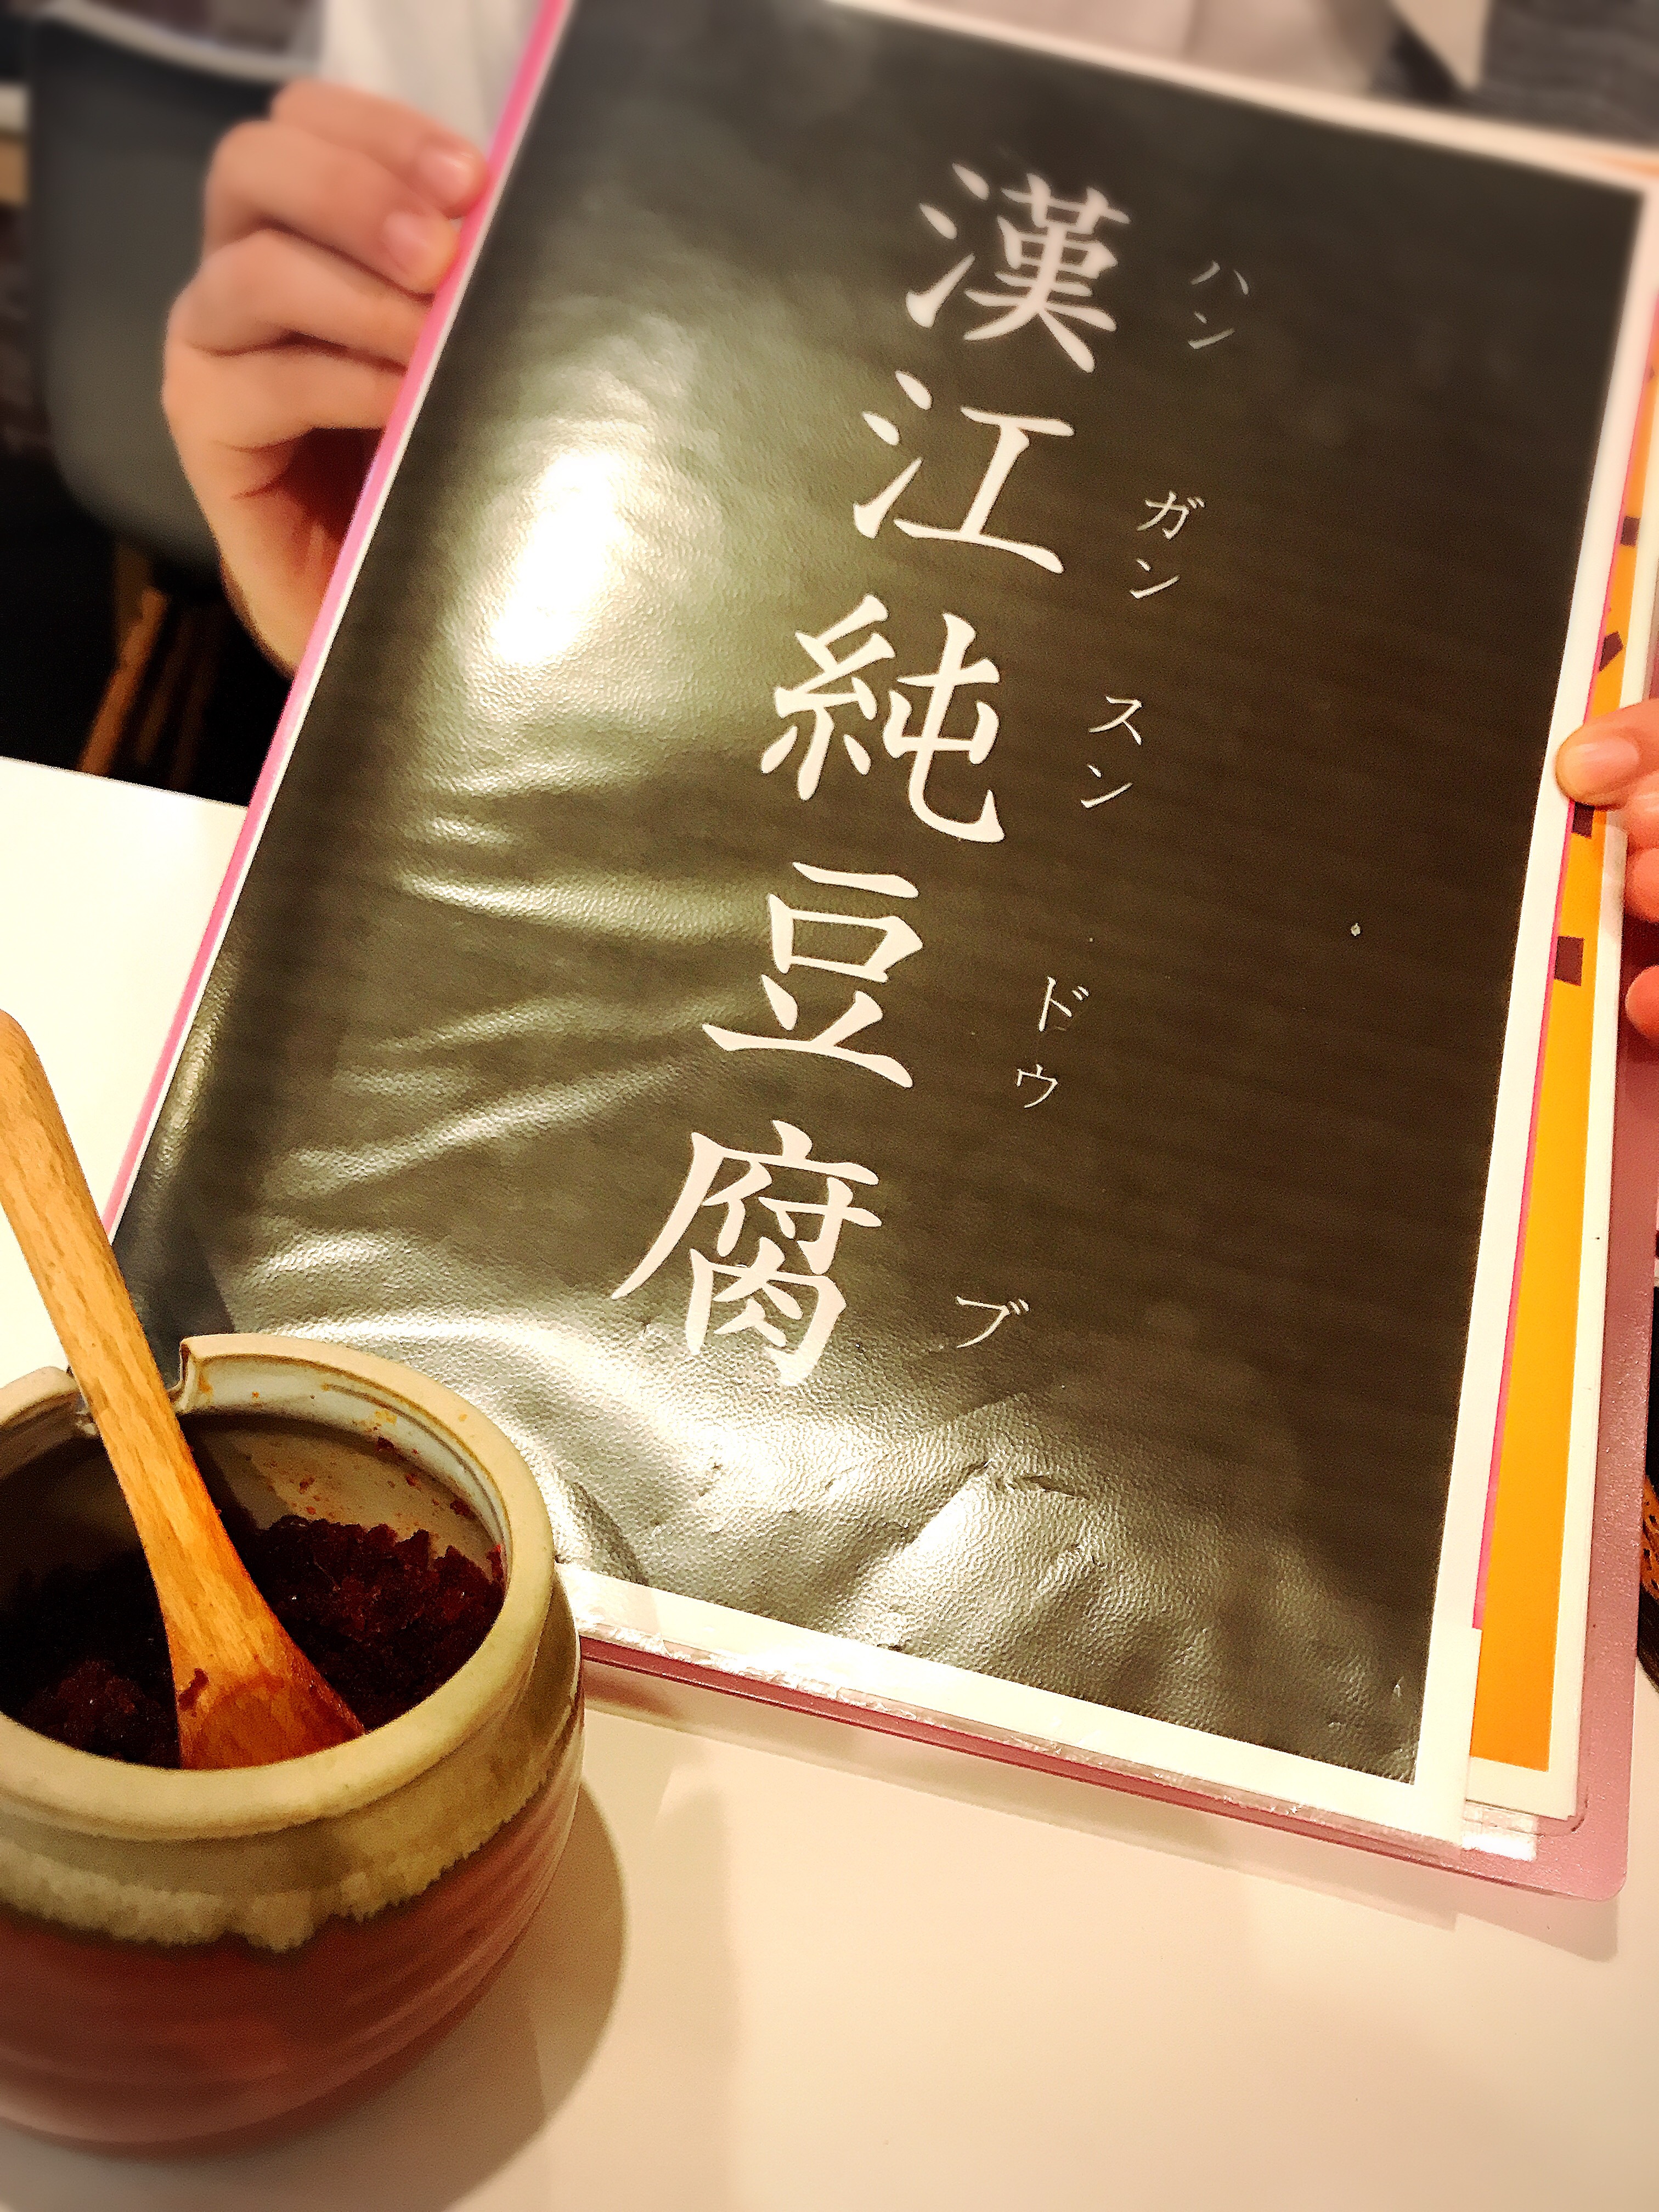 漢江純豆腐
ハンガンスンドウブ